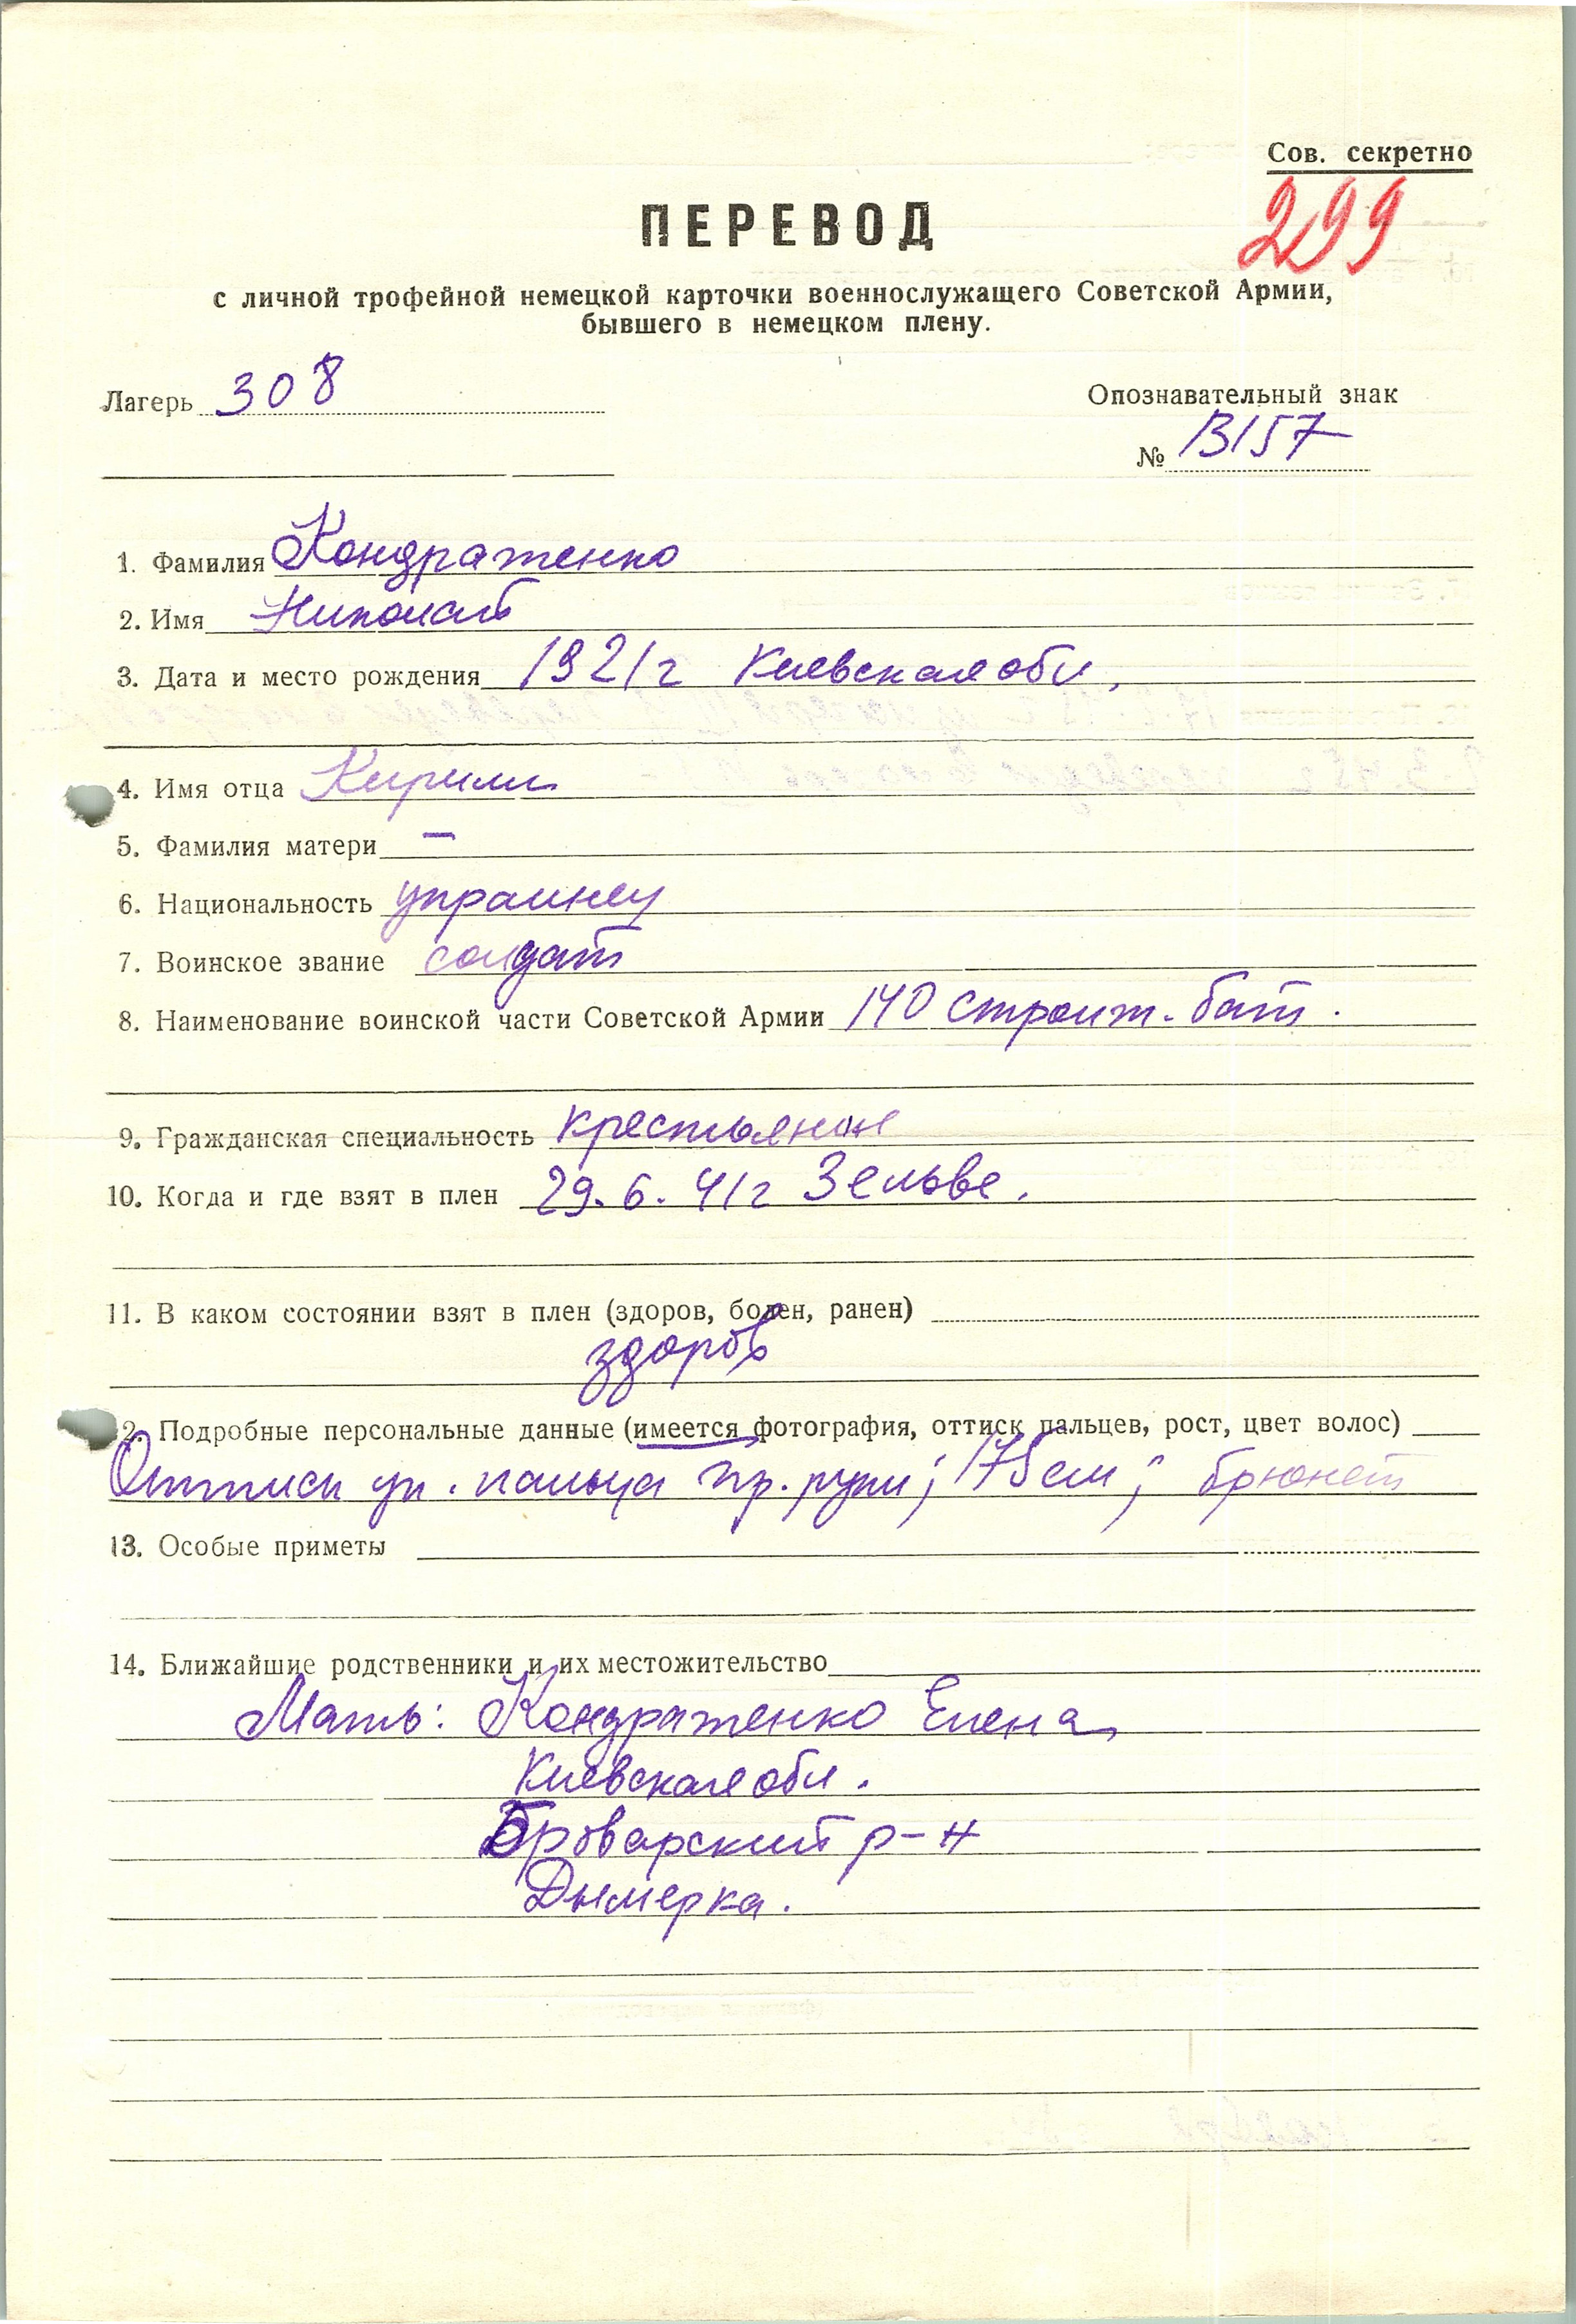 Сов. секретно
299
ПЕРЕВОД
с личной трофейной немецкой карточки военнослужащего Советской Армии,
бывшего в немецком плену.
Лагерь 308
Опознавательный знак
№ 13157
1. Фамилия Кондратенко
2. Имя Николай
3. Дата и место рождения 1921г Киевская обл.
4. Имя отца Кирилл
5. Фамилия матери —
6. Национальность украинец
7. Воинское звание солдат
8. Наименование воинской части Советской Армии 140 строит. бат.
9. Гражданская специальность крестьянин
10. Когда и где взят в плен 29.6.41г Зельве.
11. В каком состоянии взят в плен (здоров, болен, ранен)
здоров
12. Подробные персональные данные (имеется фотография, оттиск пальцев, рост, цвет волос)
Оттиск ук. пальца пр. руки; 175 см; брюнет
13. Особые приметы
14. Ближайшие родственники и их местожительство
Мать: Кондратенко Елена
Киевская обл.
Броварский р-н
Дымерка.